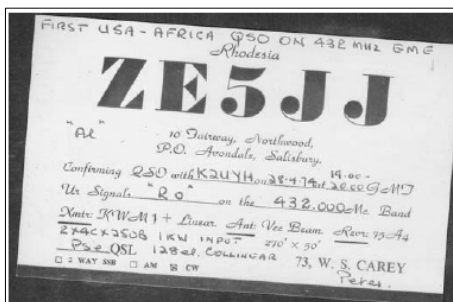 FIRST USA - AFRICA QSO ON 432 MHZ EME
Rhodesia
ZE5JJ
"Al"
10 Fairway, Northwood,
P.O. Avondale, Salisbury.
19.00-
Confirming QSO with K2UYH on 28-4-74 at 2000 GMT
Ur Signals "RO" on the 432.000 Mc Band
Xmtr: KWM1 + Linear. Ant: Vee Beam. Rcvr: 75A4
2X4CX250B 1KW INPUT 270' x 50'
Pse QSL 128el. COLLINEAR 73, W. S. CAREY
2 WAY SSB AM CW Peter.